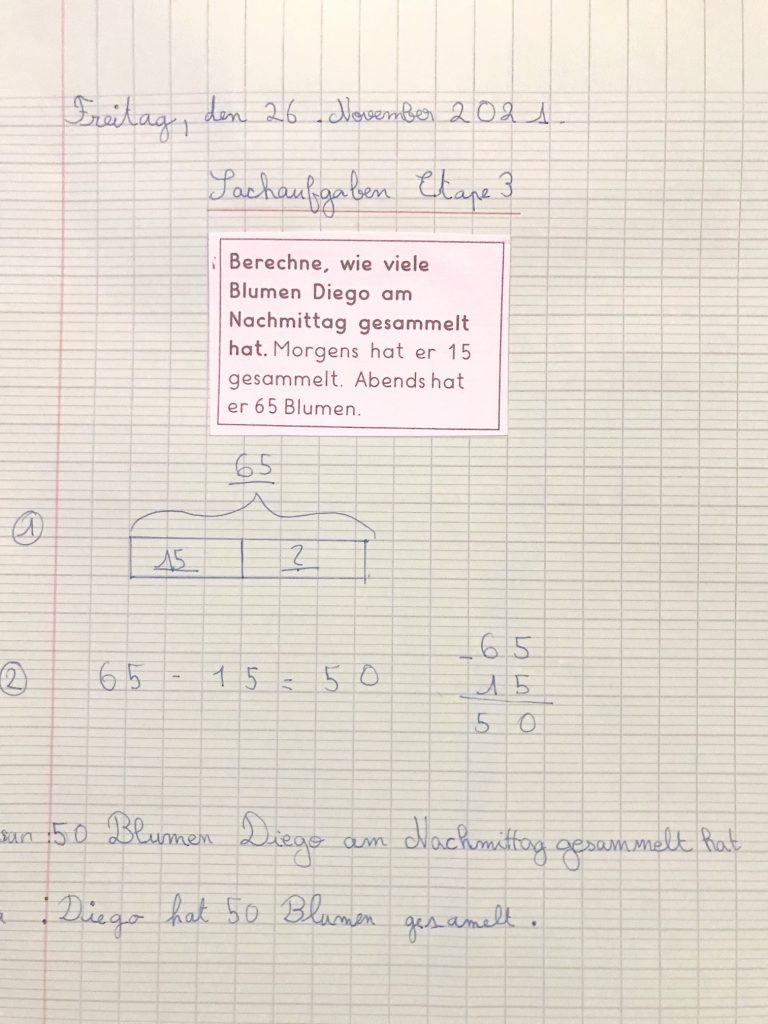 Freitag, den 26. November 2021.
Sachaufgaben Etape 3
Berechne, wie viele
Blumen Diego am
Nachmittag gesammelt
hat. Morgens hat er 15
gesammelt. Abends hat
er 65 Blumen.
65
1
15 ?
2 65 - 15 = 50
- 65
15
50
: 50 Blumen Diego am Nachmittag gesammelt hat
: Diego hat 50 Blumen gesamelt.